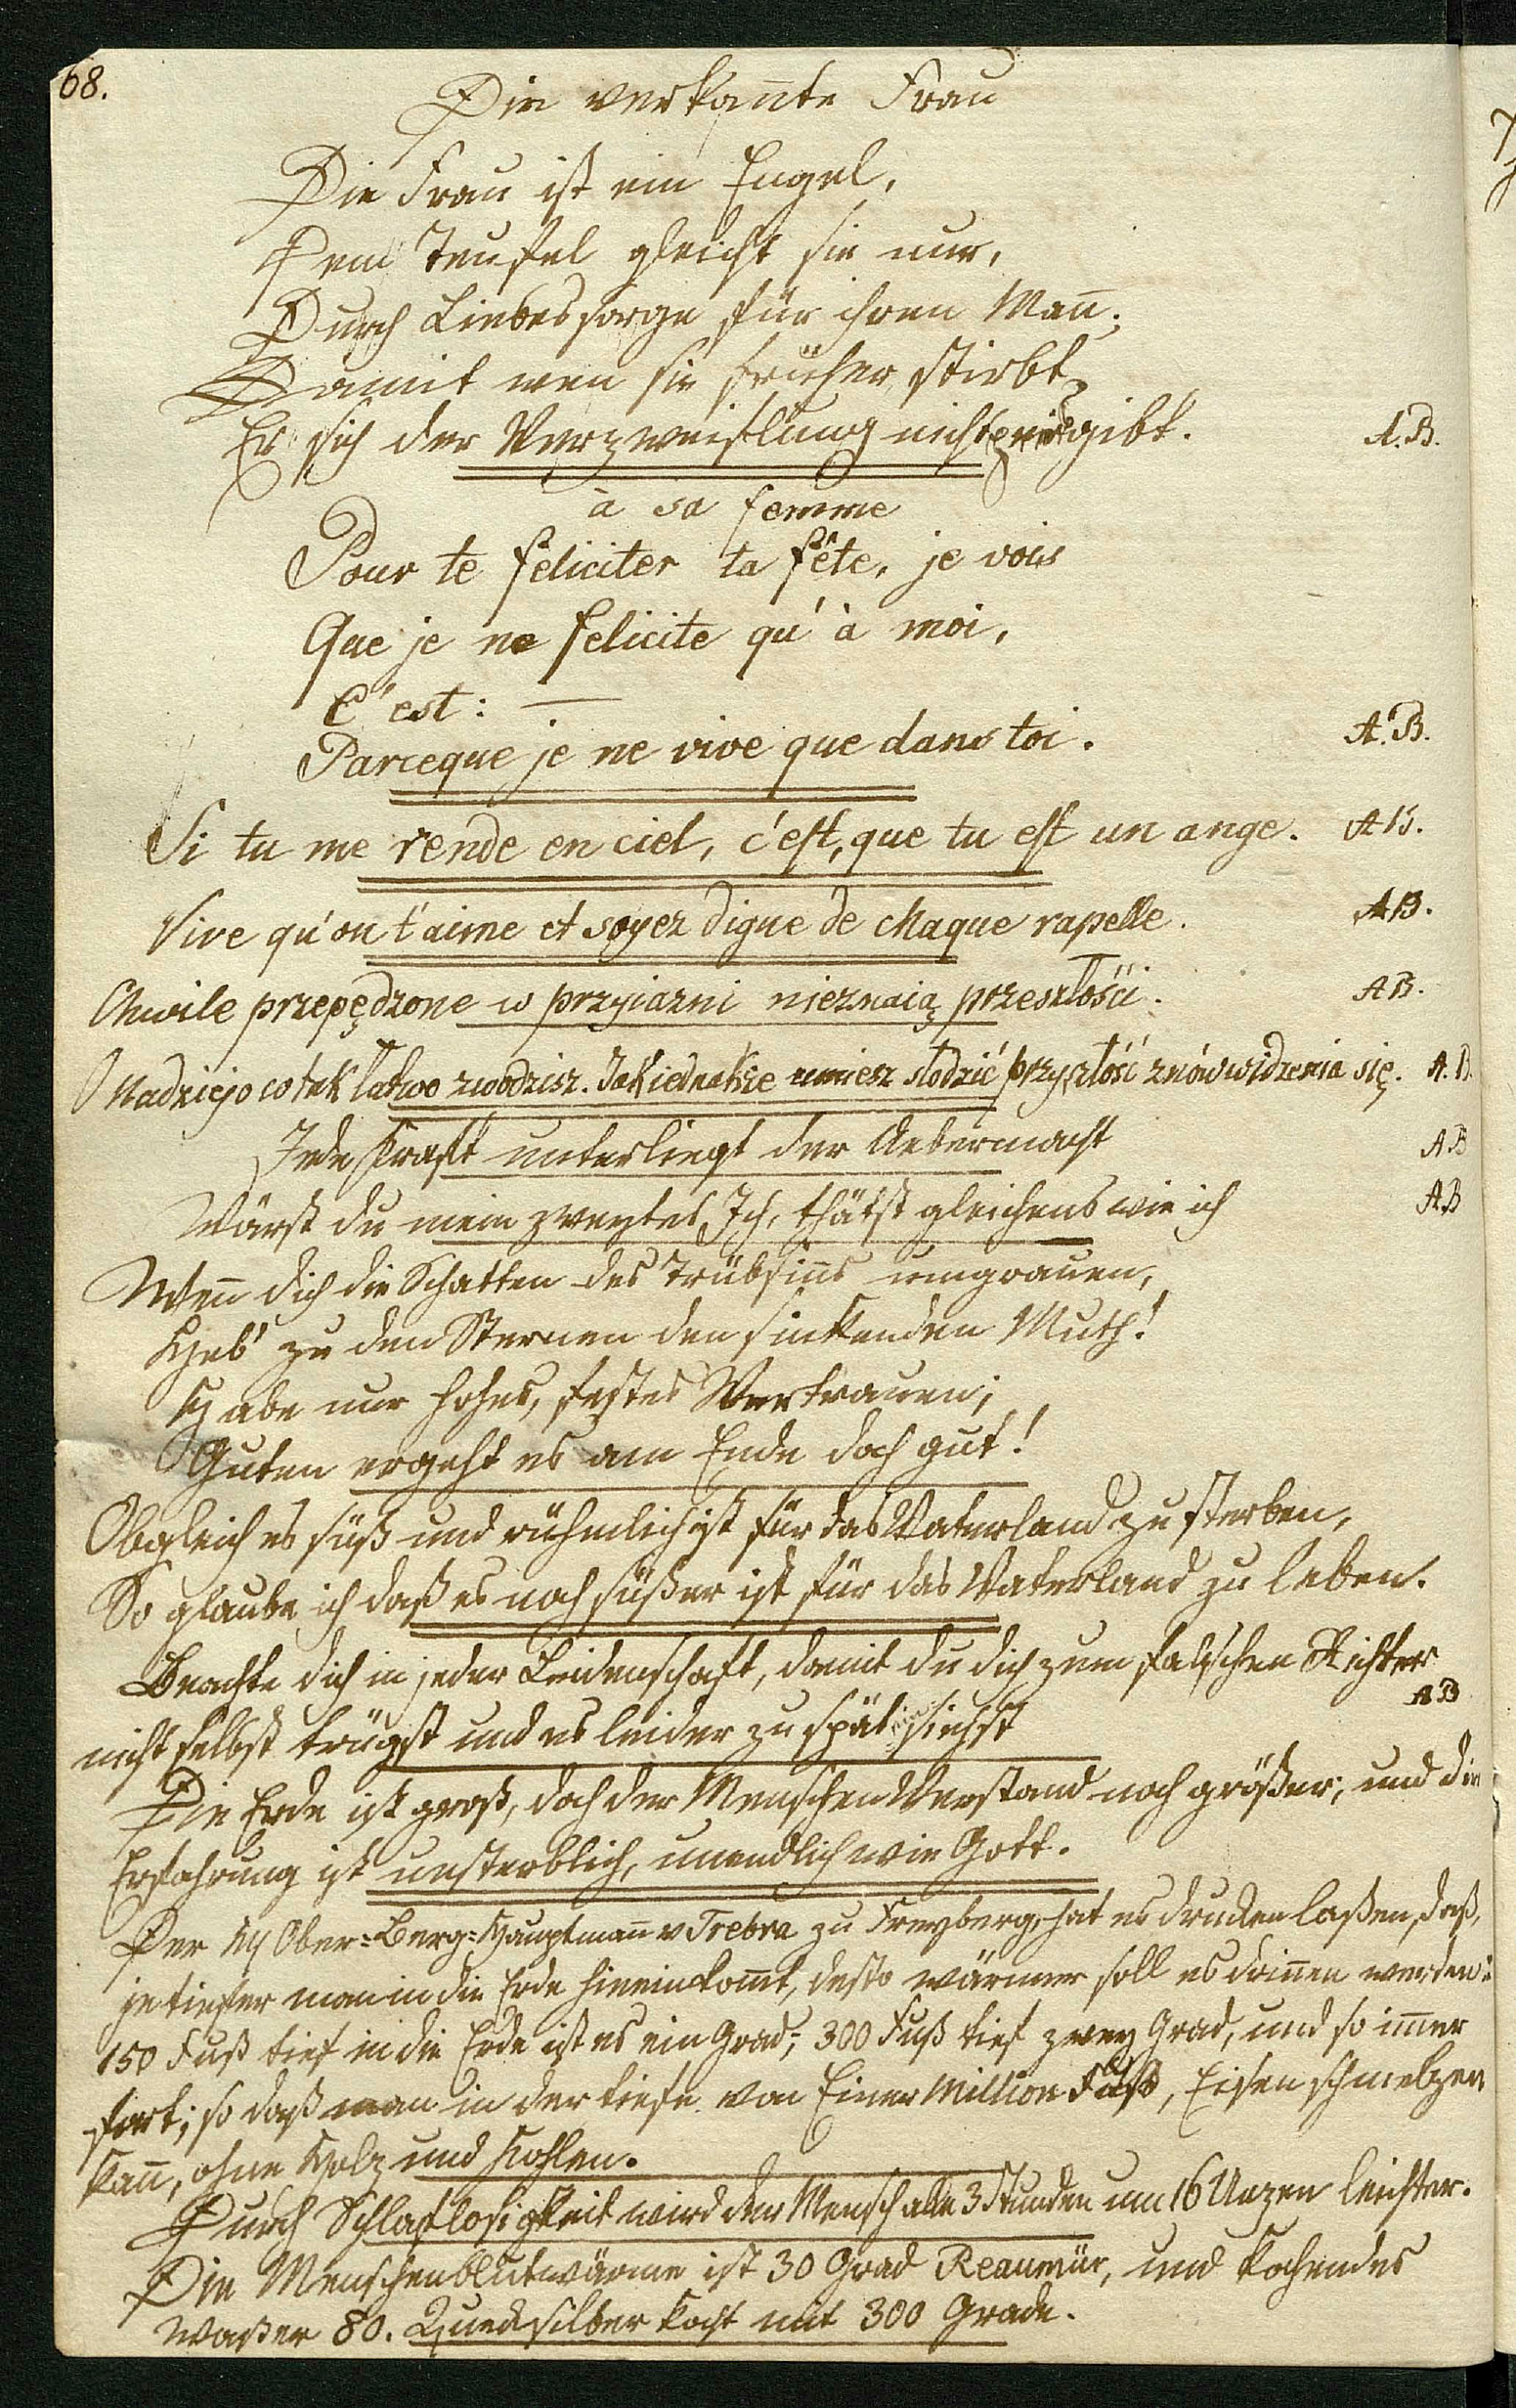 68.
Die verkan̄te Frau
Die Frau ist ein Engel,
Dem Teufel gleicht sie nur,
Durch Liebessorge für ihren Man̄;
Damit wen sie früher stirbt,
Er sich der Verzweiflung nicht gibt. A.B.
à sa femme
Pour te feliciter ta fête, je vois
Que je ne felicite qu'à moi,
C'est: —
Parceque je ne vive que dans toi. A.B.
Si tu me rende en ciel, c'est, que tu est un ange. AB.
Vive qu'on t'aime et soyez digne de chaque rapelle. AB.
Chwile przepędzone w przyiazni nieznaią przeszłości. AB.
O Nadziejo co tak łatwo zwodzisz. Jak iednakże umiesz słodzić przyszłość znówwidzenia się. A.B.
Jede Kraft unterliegt der Uebermacht AB
Wärst du mein zweytes Ich, thätst gleichens wie ich AB
Wen̄ dich die Schatten des Trübsin̄s umgrauen,
Heb' zu den Sternen den sinkenden Muth!
Habe nur hohes, festes Vertrauen;
Guten ergeht es am Ende doch gut!
Obgleich es süß und rühmlich ist für das Vaterland zu sterben,
So glaube ich daß es noch süßer ist für das Vaterland zu leben.
Beachte dich in jeder Leidenschaft, damit du dich zum falschen Richter
nicht selbst trügst und es leider zu spät einsiehst AB
Die Erde ist groß, doch der Menschen Verstand noch größer, und die
Erfahrung ist unsterblich, unendlich wie Gott.
Der H Ober=Berg=Hauptman̄ v Trebra zu Freyberg, hat es drucken laßen, daß,
je tiefer man in die Erde hineinkom̄t, desto wärmer soll es drin̄en werden:
150 Fuß tief in die Erde ist es ein Grad; 300 Fuß tief zwey Grad, und so im̄er
fort; so daß man in der tiefe von Einer Million Fuß, Eisen schmelzen
kan̄, ohne Holz und Kohlen.
Durch Schlaflosigkeit wird der Mensch alle 3 Stunden um 16 Unzen leichter.
Die Menschenblutwärme ist 30 Grad Reaumür, und kochendes
Waßer 80. Quecksilber kocht mit 300 Grade.